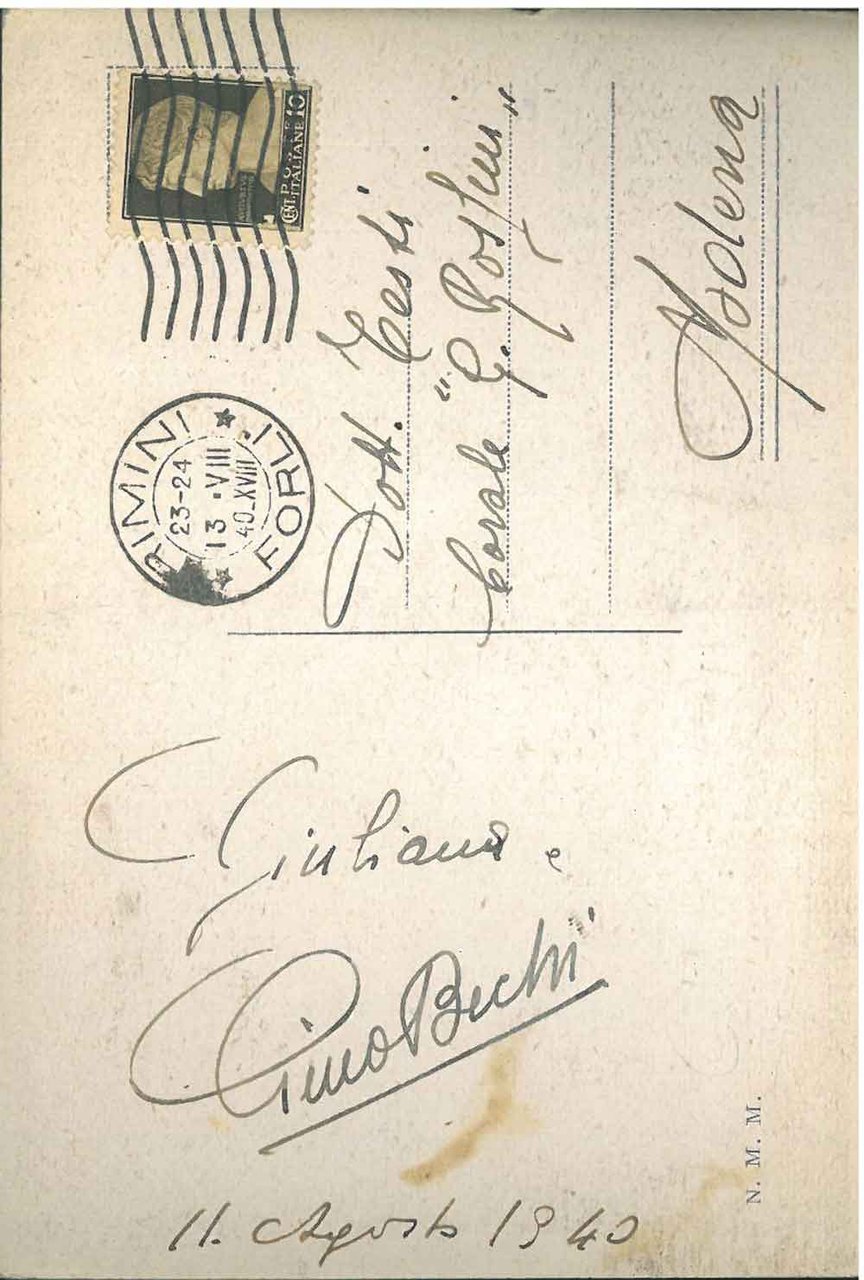 CENT. 10
POSTE
ITALIANE
RIMINI
23-24
13·VIII
40_XVIII
FORLI
Dott. Testi
Corale "G. Rossini"
Modena
Giuliana e
Gino Bechi
11. Agosto 1940
N. M. M.